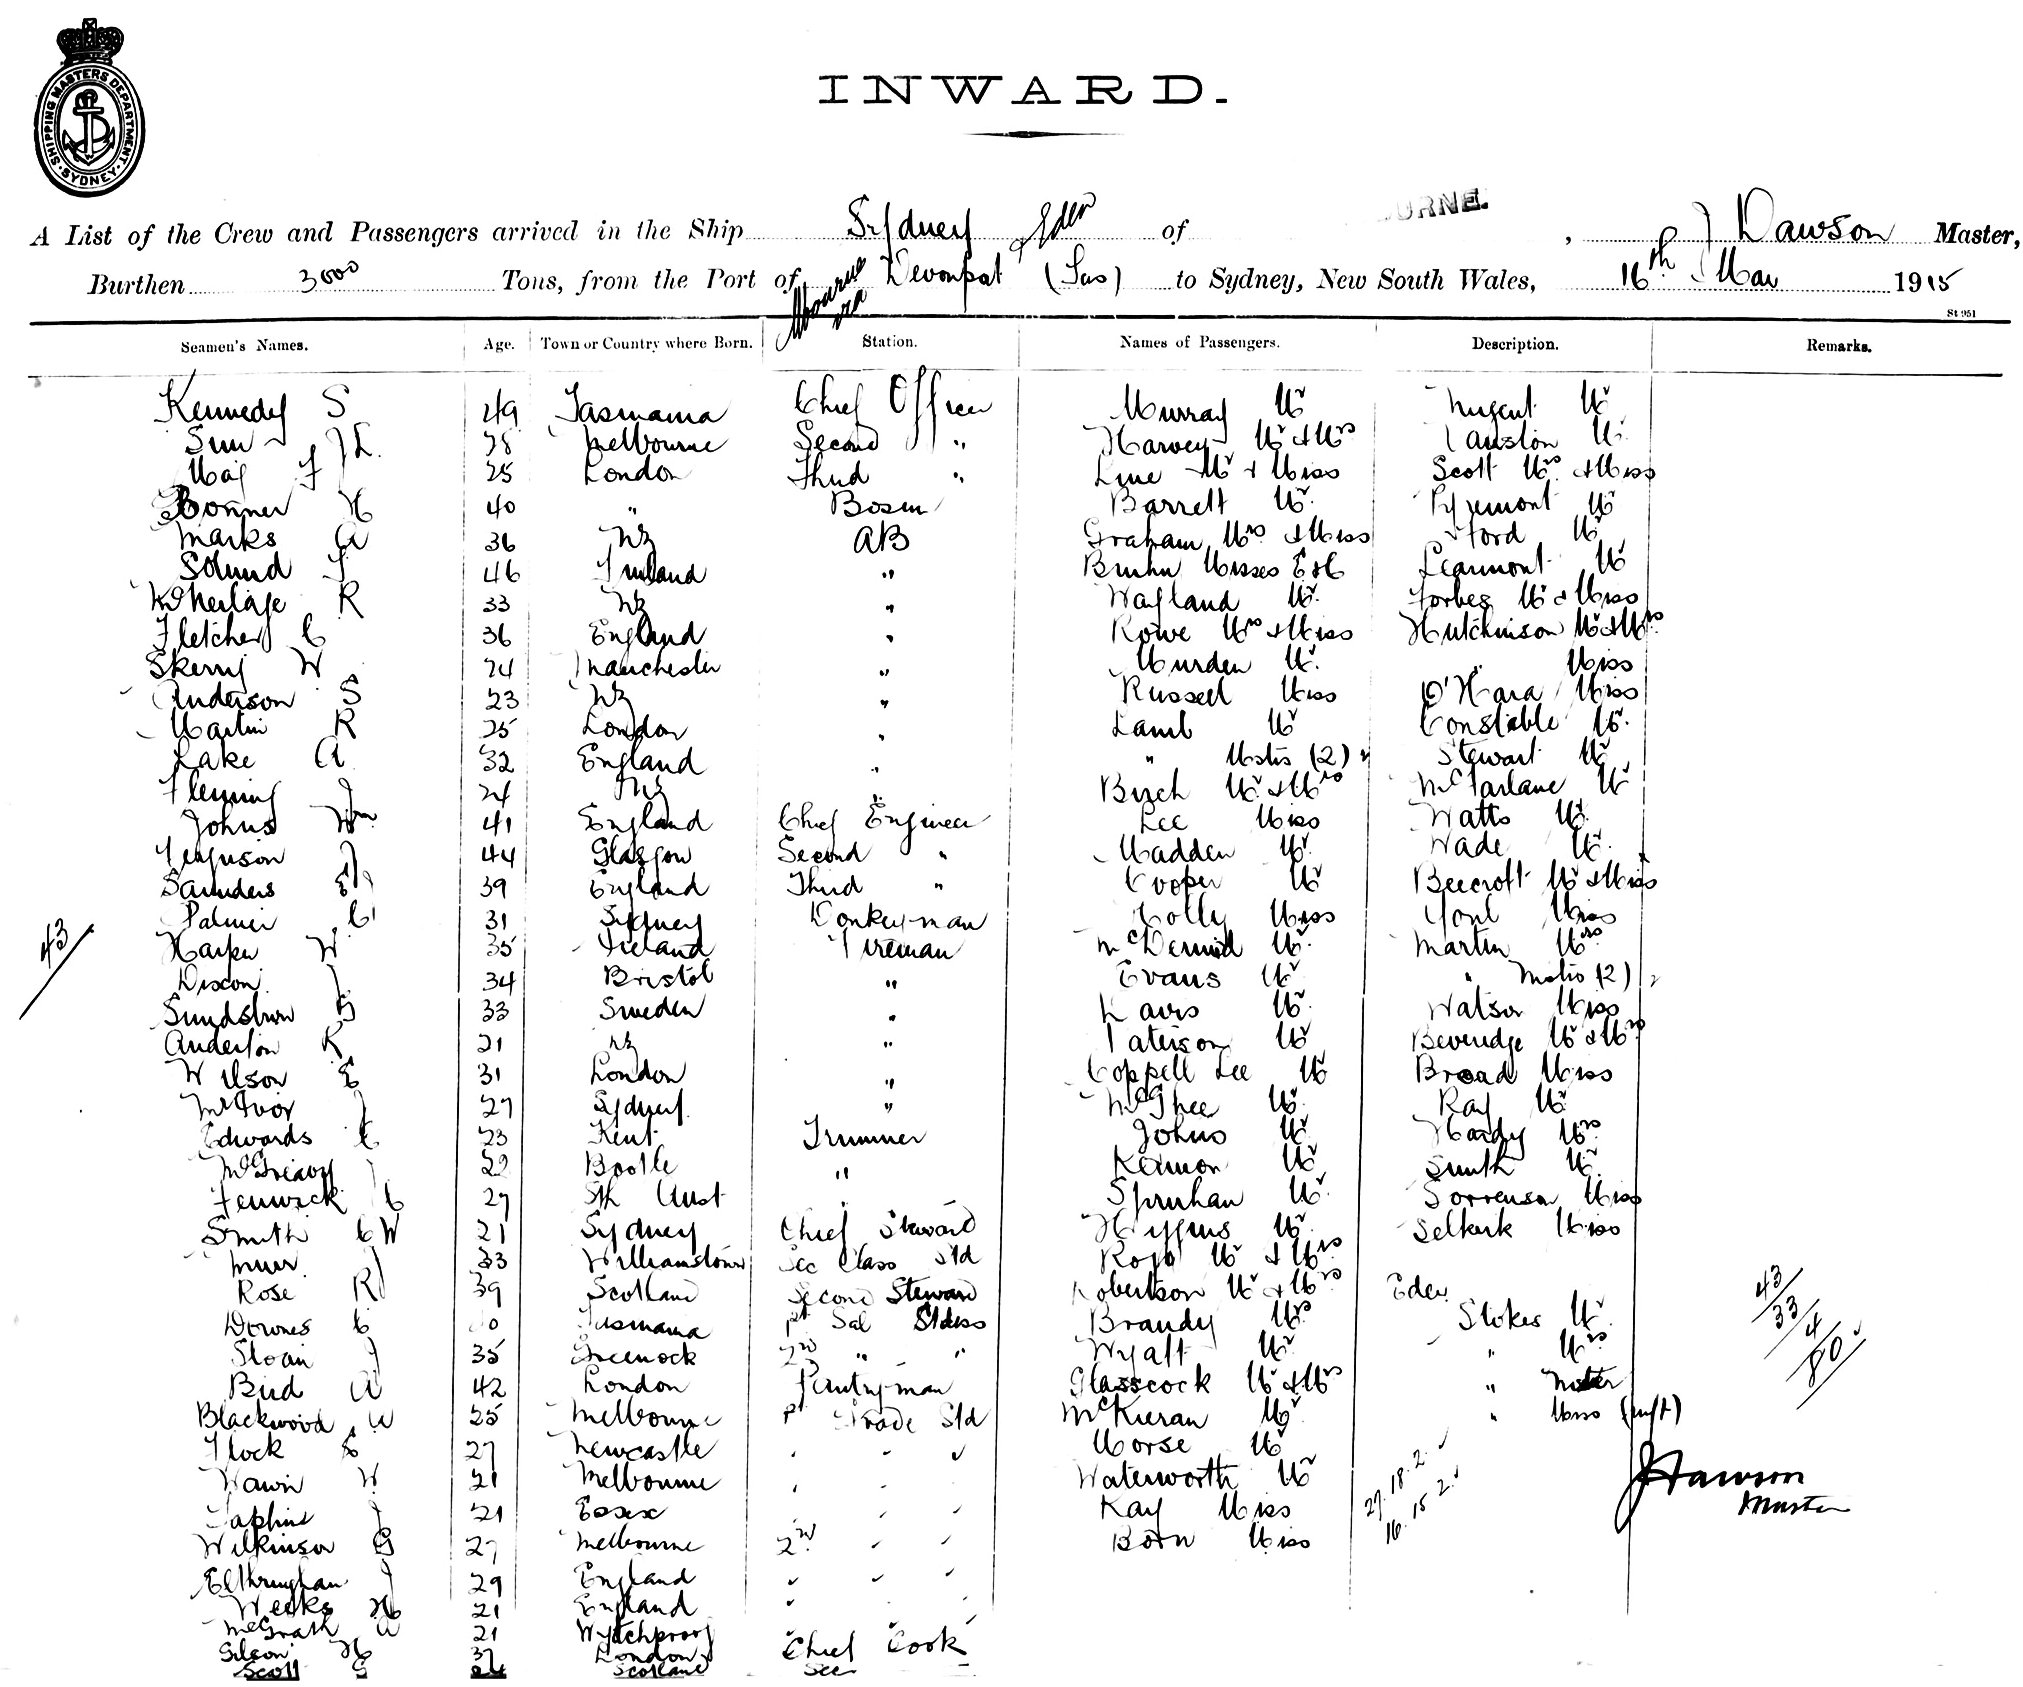 SHIPPING MASTERS DEPARTMENT · SYDNEY ·
INWARD.
A List of the Crew and Passengers arrived in the Ship Sydney Eden of URNE. , J Dawson Master,
Burthen 3000 Tons, from the Port of Devonport (Tas) to Sydney, New South Wales, 16th Mar 1915
via
St 951
Seamen's Names. Age. Town or Country where Born. Station. Names of Passengers. Description. Remarks.
Kennedy S 49 Tasmania Chief Officer Murray Mr Nugent Mr
28 Melbourne Second " Harvey Mr & Mrs Mr
May F 25 London Third " Line Mr & Miss Scott Mrs & Miss
Bonner H 40 " Bosun Barrett Mr Pyremont Mr
Marks A 36 NZ AB Graham Mrs & Miss Ford Mr
46 Finland " Bruhn Misses E & C Learmont Mr
R 33 NZ " Wayland Mr Forbes Mr & Miss
Fletcher C 36 England " Rowe Mrs & Miss Hutchinson Mr & Mrs
Skerry W 24 Manchester " Murden Mr " Miss
Anderson S 23 NZ " Russell Miss O'Hara Miss
Martin R 25 London " Lamb Mr Constable Mr
Lake A 32 England " " Mstrs (2) " Stewart Mr
Fleming J 24 NZ " Birch Mr & Mrs McFarlane Mr
Johns Wm 41 England Chief Engineer Lee Miss Watts Mr
Ferguson J 44 Glasgow Second " Madden Mr Wade Mr
Saunders 39 England Third " Cooper Mr Beecroft Mr & Miss
Palmer C 31 Sydney Donkeyman Colly Miss Miss
43 Harper W 35 Ireland Fireman McDermid Mr Martin Mrs
Dixon J 34 Bristol " Evans Mr " Mstrs (2) "
Sundstrom G 33 Sweden " Mr Watson Miss
Anderton R 21 NZ " Paterson Mr Beveridge Mr & Mrs
Wilson E 31 London " Coppell Lee Mr Broad Miss
McIvor J 27 Sydney " McGhee Mr Ray Mr
Edwards C 23 Kent Trimmer Johns Mr Hardy Mrs
McGreavy J Bootle " Mr Smith Mr
Fenwick C 27 Sth Aust " Spruhan Mr Sorrenson Miss
Smith C W 21 Sydney Chief Steward Mr Selkirk Miss
Muir J 33 Williamstown Sec Class Std Mr & Mrs
Rose R 39 Scotland Second Steward Robertson Mr & Mrs Eden
Downes C Tasmania 1st Sal Stdess Brandy Mrs Stokes Mr
Sloan J 35 Greenock 2nd " " Wyatt Mr " Mrs
Bird A 42 London Pantryman Glasscock Mr & Mrs " Mster
Blackwood W 25 Melbourne 1st Grade Std McKieran Mr " Miss (inft)
43
33
4
80
Flock E 27 Newcastle Morse Mr
W 21 Melbourne Waterworth Mr
Taplin J 21 Essex Kay Miss
Wilkinson G 27 Melbourne 2nd Born Miss
27. 18. 2.
16. 15 2.
J Dawson
Master
Elthringham J 29 England
Weeks H 21 England
McGrath A 21 Wytchproof
Gibson H 37 London Chief Cook
Scott G Scotland Sec